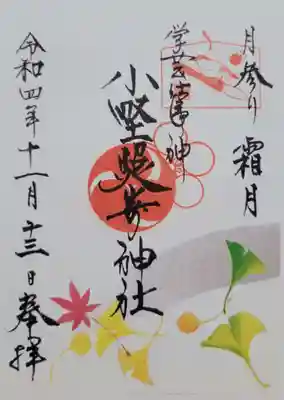 月参り 霜月
学芸仕事の神
小野照崎神社
令和四年十一月十三日 奉拝